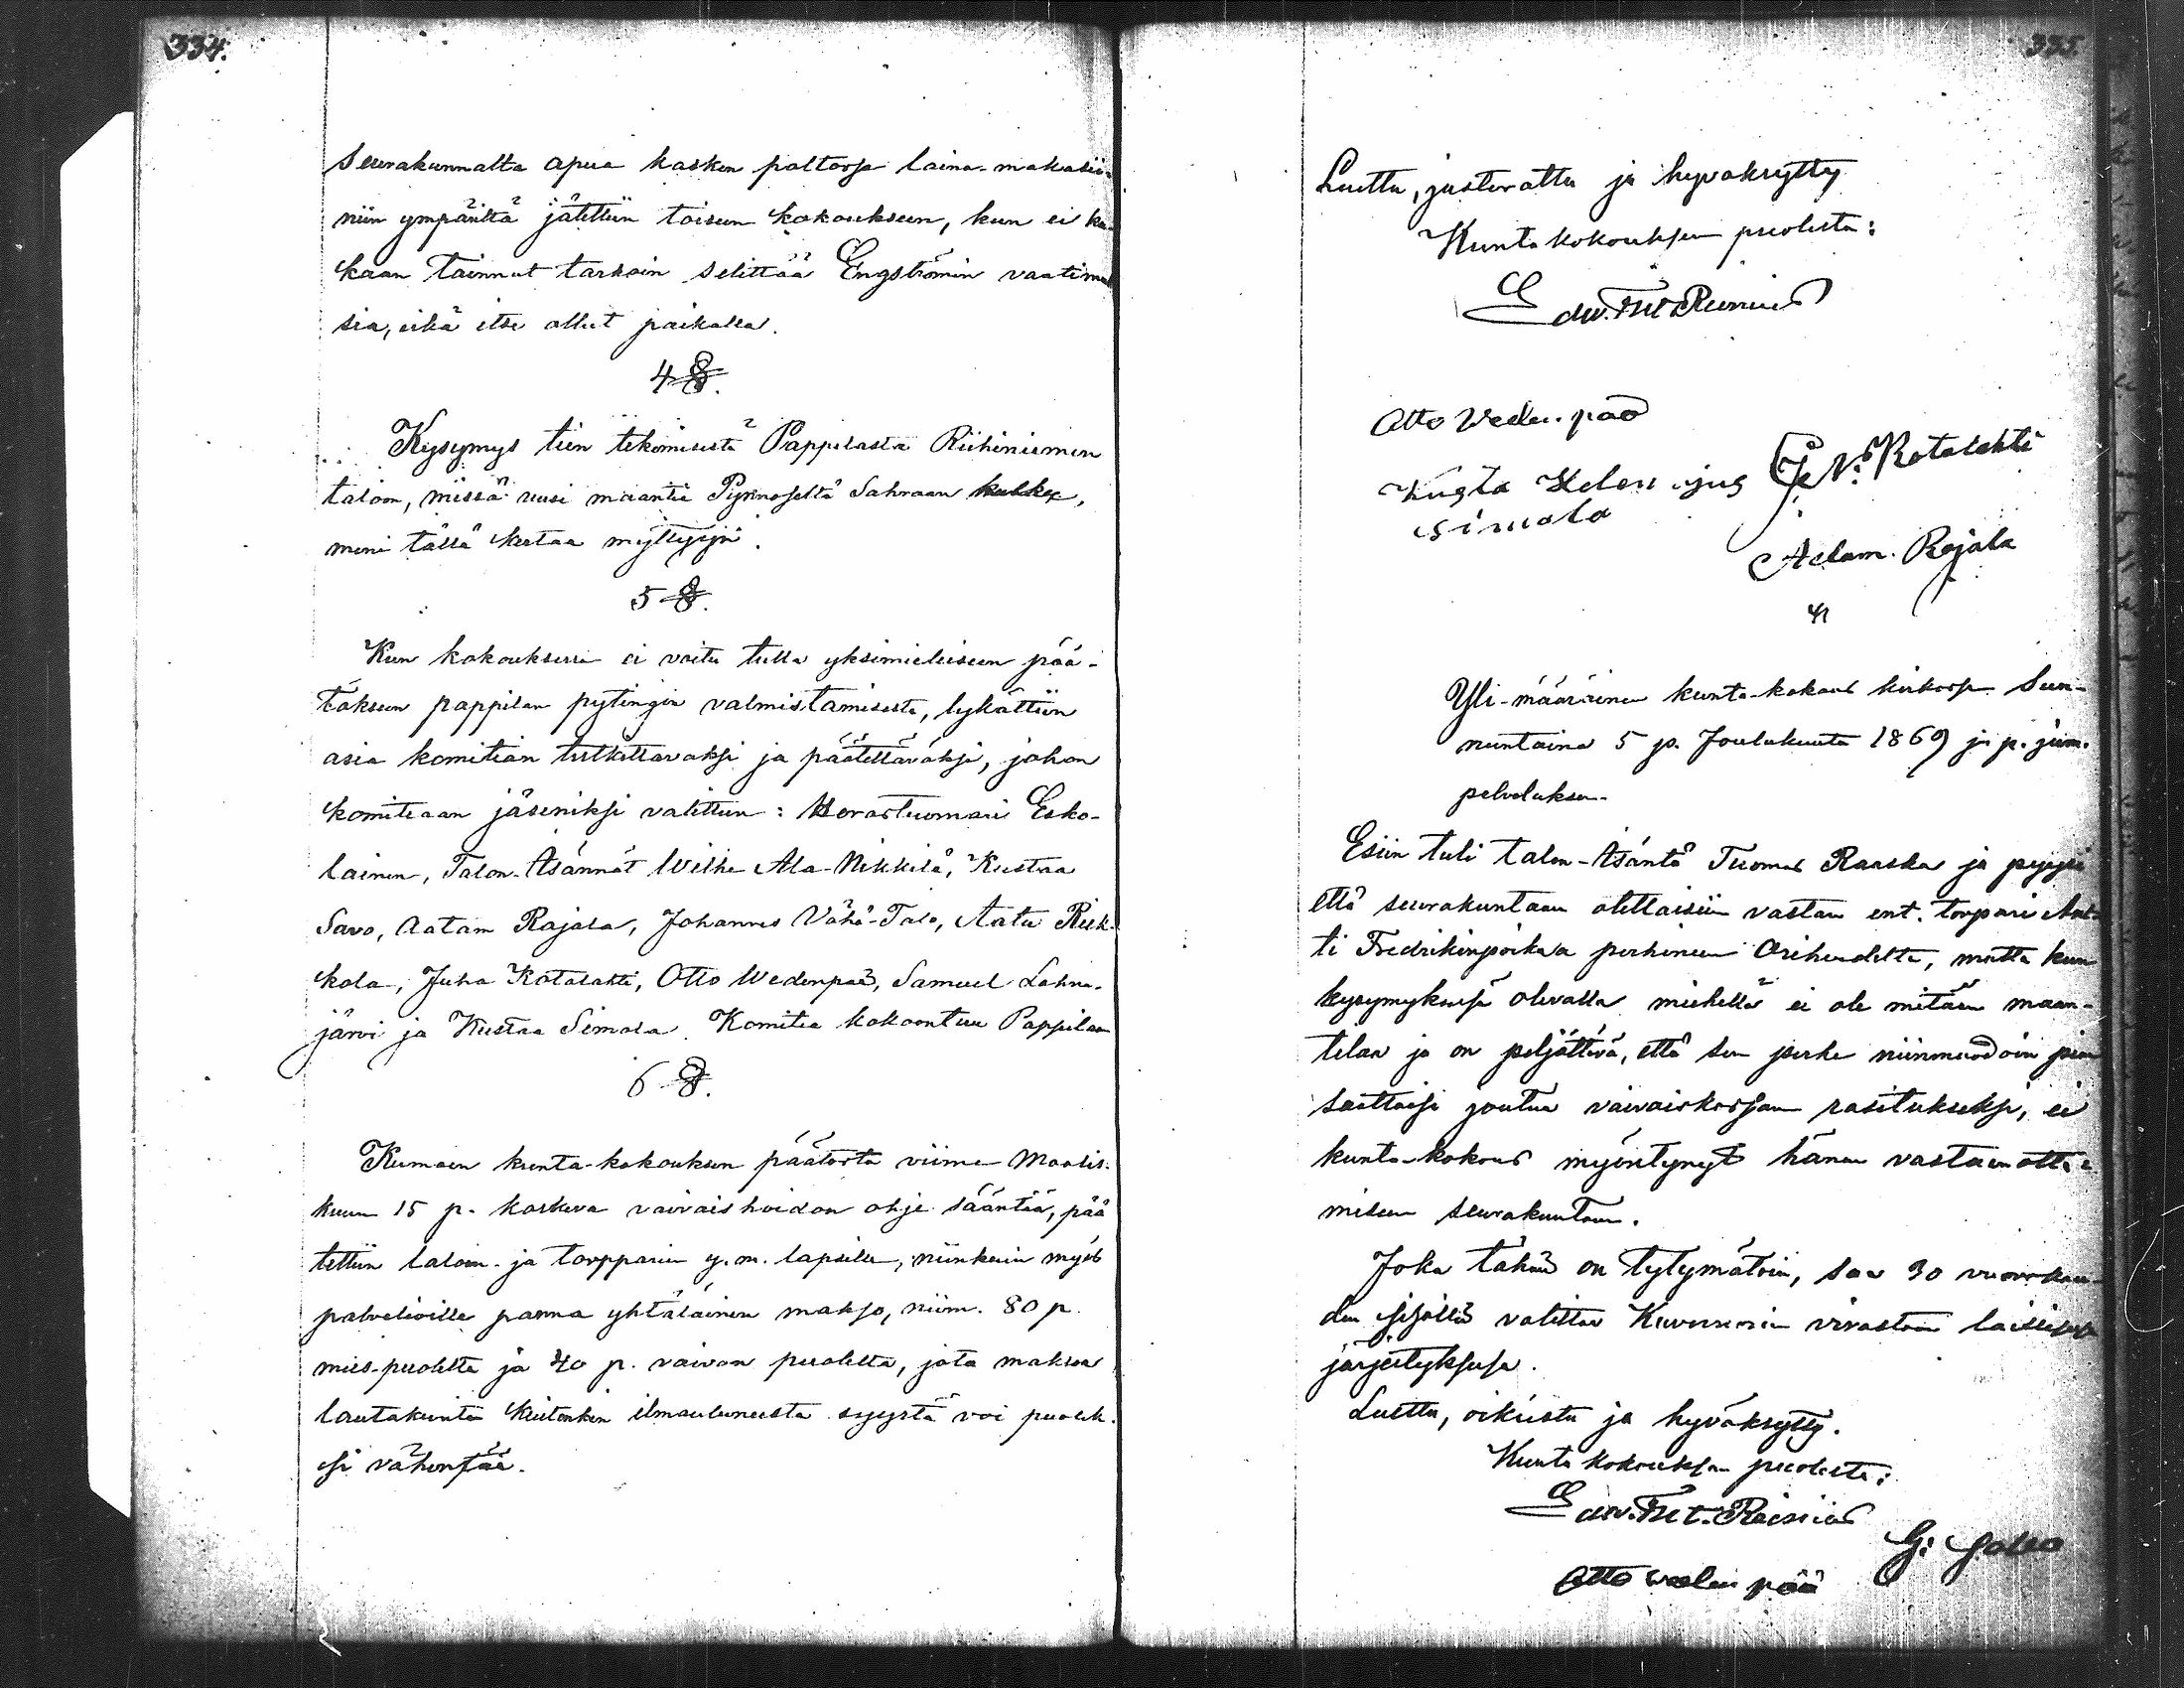 334.
Seurakunnalta apua kasken poltossa laina-makasii-
niin ympäriltä jätettiin toiseen kokoukseen, kun ei ku-
kaan tainnut tarkoin selittää Engströmin vaatimuk
sia, eikä itse ollut paikalla.
4 §.
Kysymys tien tekemisestä Pappilasta Riihiniemen
taloon, missä uusi maantie Sahraan kulkee,
meni tällä kertaa myttyyn.
5 §.
Kun kokouksessa ei voitu tulla yksimieliseen pää-
tökseen pappilan pytingin valmistamisesta, lykättiin
asia komitean tutkittavaksi ja päätettäväksi, johon
komiteaan jäseniksi valittiin: Herastuomari Esko-
lainen, Talon-Isännät Wilhe Ala-Nikkilä, Kustaa
Savo, Aatam Rajala, Johannes Vähä-Talo, Aatu Riek-
kola, Juha Katalahti, Otto Wedenpää, Samuel Lahna-
järvi ja Kustaa Simola. Komitea kokoontuu Pappilaan
6 §.
Kumoen kunta-kokouksen päätöstä viime Maalis-
kuun 15 p. koskeva vaivaishoidon ohje sääntöä, pää
tettiin taloin- ja torpparien y.m. lapsille, niinkuin myös
palvelioille panna yhtäläinen makso, niim. 80 p.
mies-puolelta ja 40 p. vaivon puolelta, jota maksoa
lautakunta kuitenkin ilmauluneesta syystä voi puolek-
si vähentää.
335.
Luettu, justerattu ja hyväksytty
Kuntakokouksen puolesta:
Edw. Reinius
Otto Weden pää
Kusta
Simola
J. N. Katalahti
Adam. Rajala
Yli-määräinen kunta-kokous kirkossa Sun-
nuntaina 5 p. Joulukuuta 1869 j. p. jum.
palveluksen.
Esiin tuli talon-Isäntä Tuomas Raaska ja pyysi
että seurakuntaan otettaisiin vastaan ent. torpari Ant-
ti Fredrikinpoika perhineen Orihvedeltä, mutta kun
kysymyksessä olevalla miehellä ei ole mitään maan-
tilaa ja on peljättävä, että sen perhe niinmuodoin pian
saattaisi joutua vaivaiskassan rasitukseksi, ei
kunta-kokous myöntynyt hänen vastaanotta-
miseen seurakuntaan.
Joka tähän on tytymätöin, saa 30 vuorokau-
den sisällä valittaa Kuvernörin virastoon laillisessa
järjestyksessä.
Luettu, oikiistu ja hyväksytty.
Kunta kokouksen puolesta:
Edw. Reinius
Otto Weden pää